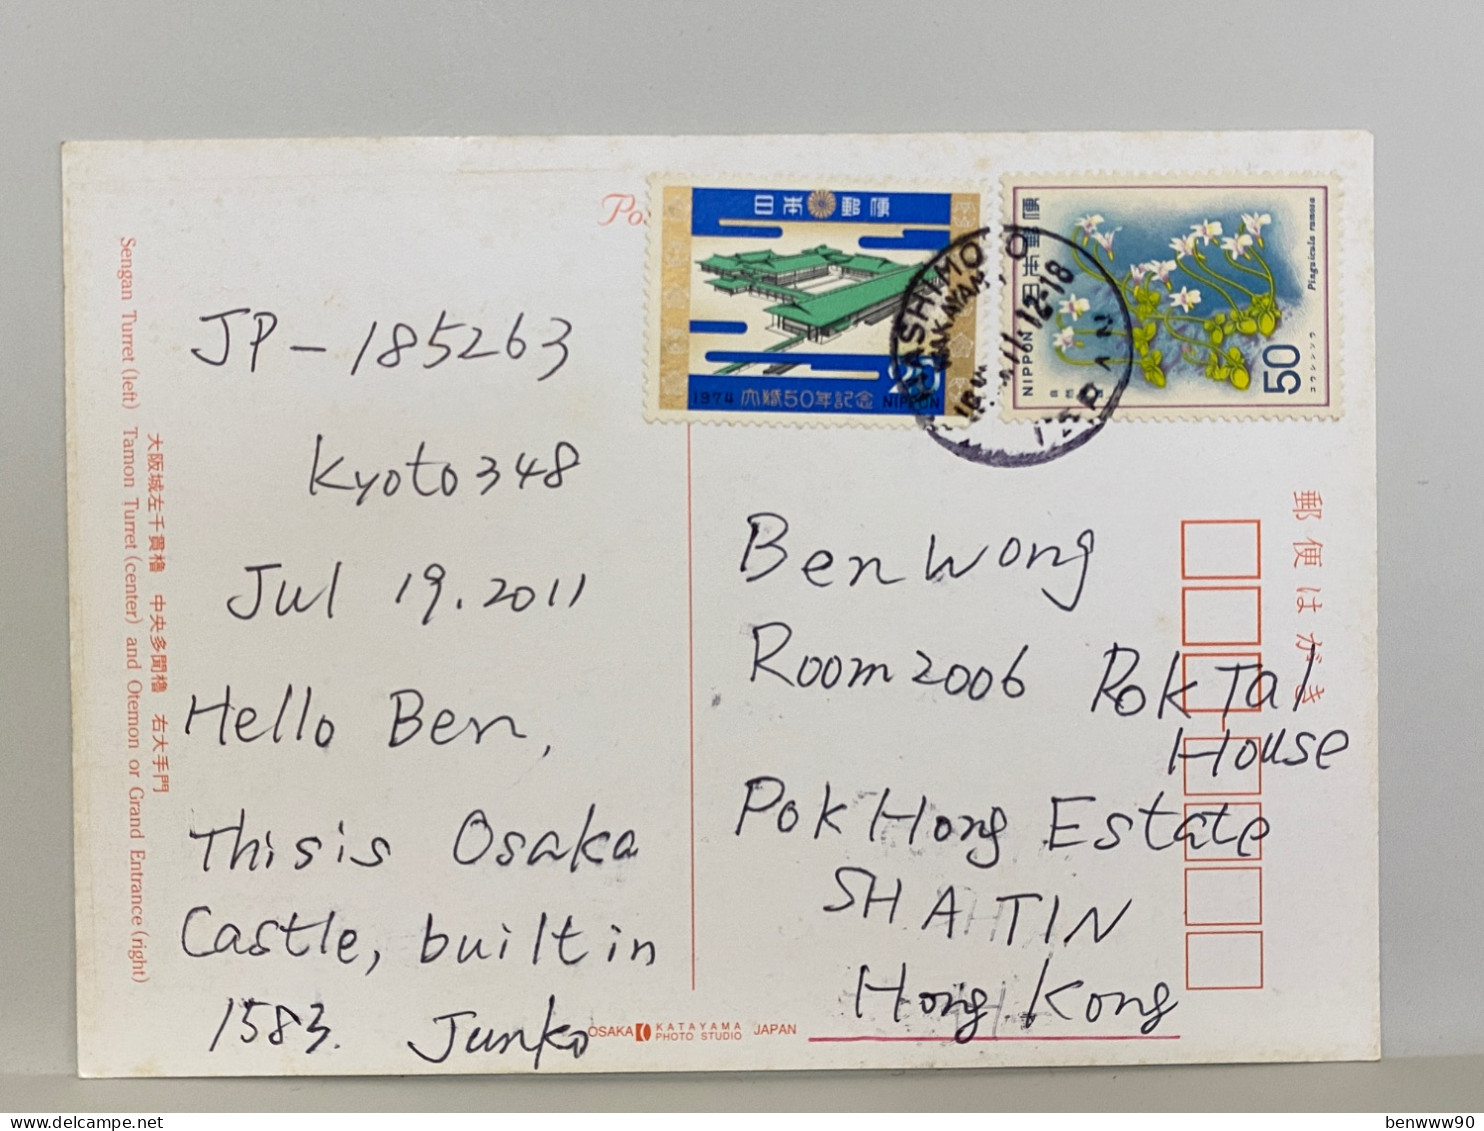 Sengan Turret (left)  Tamon Turret (center) and Otemon or Grand Entrance (right)
大阪城左千貫櫓　中央多聞櫓　右大手門
JP-185263
Kyoto348
Jul 19.2011
Hello Ben,
This is Osaka
Castle, built in
1583. Junko
日本郵便
1974 大婚50年記念 NIPPON
HASHIMOTO
WAKAYAMA
12-18
JAPAN
日本郵便
NIPPON
Pinguicula ramosa
50
コウシンソウ
郵便はがき
Ben Wong
Room2006 Pok Tai
House
Pok Hong Estate
SHATIN
Hong Kong
OSAKA KATAYAMA PHOTO STUDIO JAPAN
benwww90